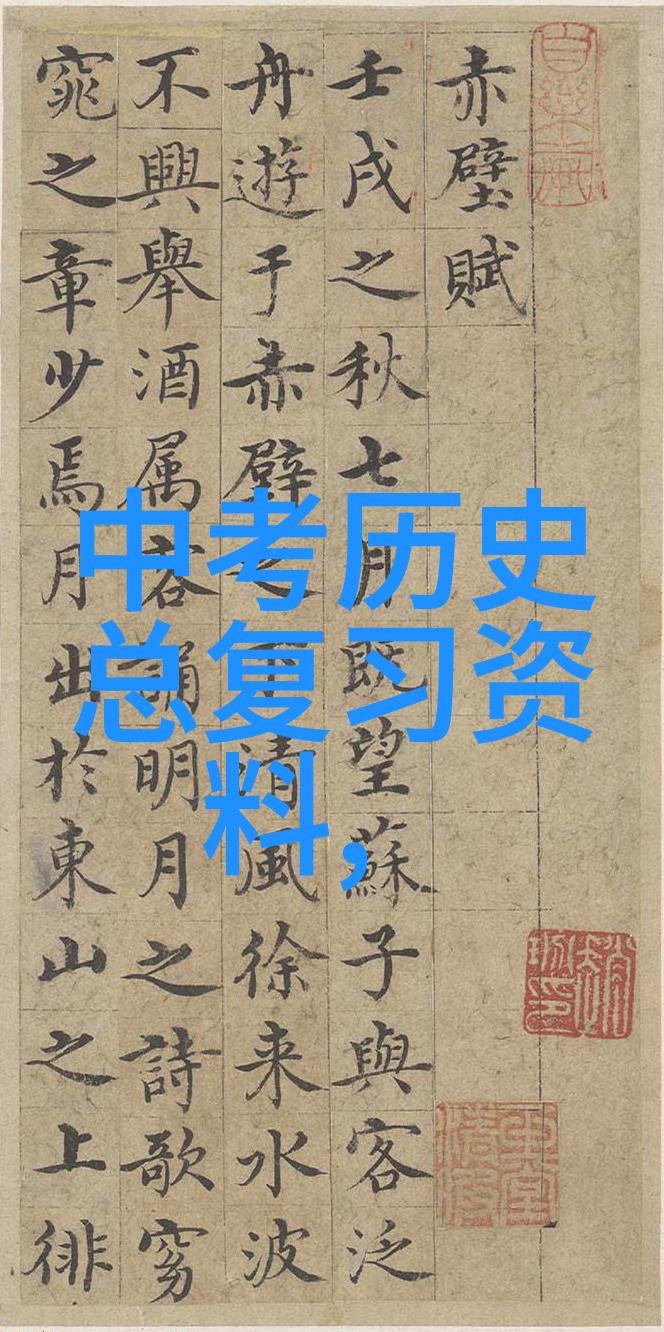 赤壁賦
壬戌之秋七月既望蘇子與客泛
舟遊于赤壁之下清風徐来水波
不興舉酒属客誦明月之詩歌窈
窕之章少焉月出於東山之上徘
中考历史
总复习资
料,